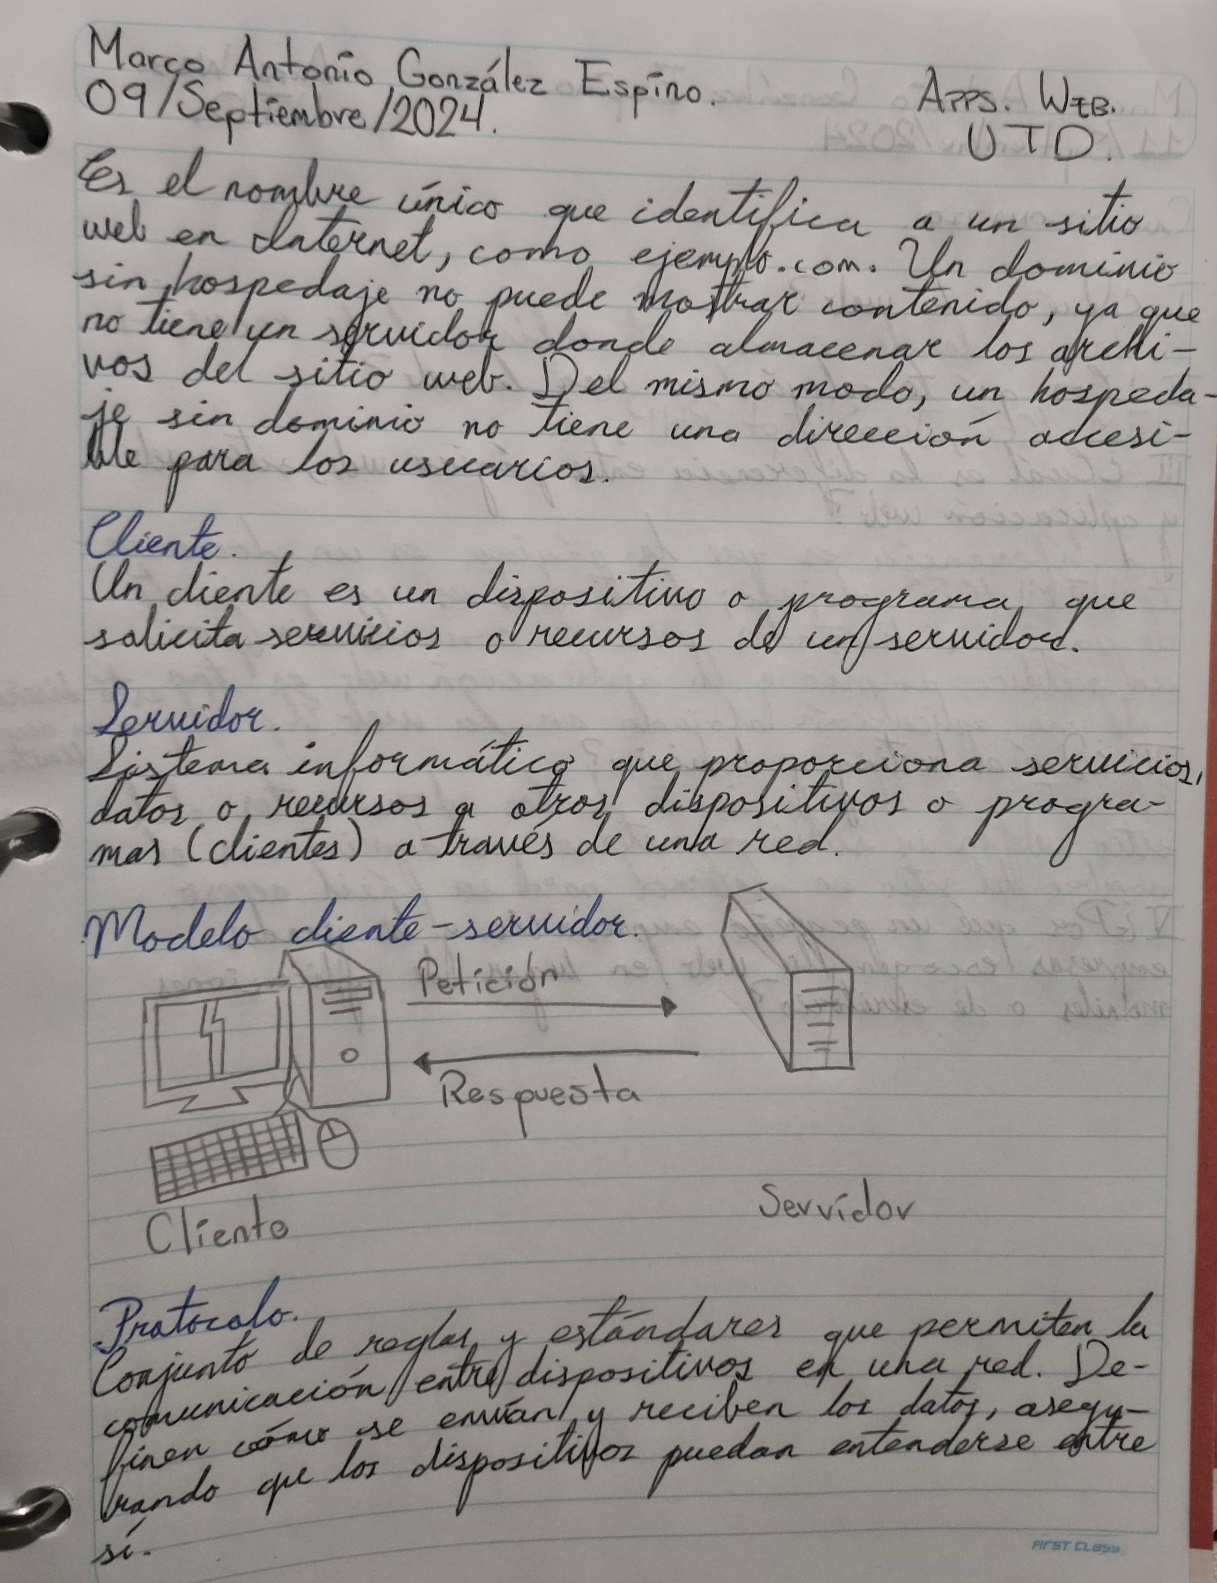 Marco Antonio González Espino.
Apps. Web.
09/Septiembre/2024.
UTD.
Es el nombre único que identifica a un sitio
web en Internet, como ejemplo.com. Un dominio
sin hospedaje no puede mostrar contenido, ya que
no tiene un servidor donde almacenar los archi-
vos del sitio web. Del mismo modo, un hospeda-
je sin dominio no tiene una dirección accesi-
ble para los usuarios.
Cliente.
Un cliente es un dispositivo o programa que
solicita servicios o recursos de un servidor.
Servidor.
Sistema informático que proporciona servicios,
datos o recursos a otros dispositivos o progra-
mas (clientes) a través de una red.
Modelo cliente-servidor.
Petición
Respuesta
Servidor
Cliente
Protocolo.
Conjunto de reglas y estándares que permiten la
comunicación entre dispositivos en una red. De-
finen cómo se envían y reciben los datos, asegu-
rando que los dispositivos puedan entenderse entre
sí.
FIRST CLASS